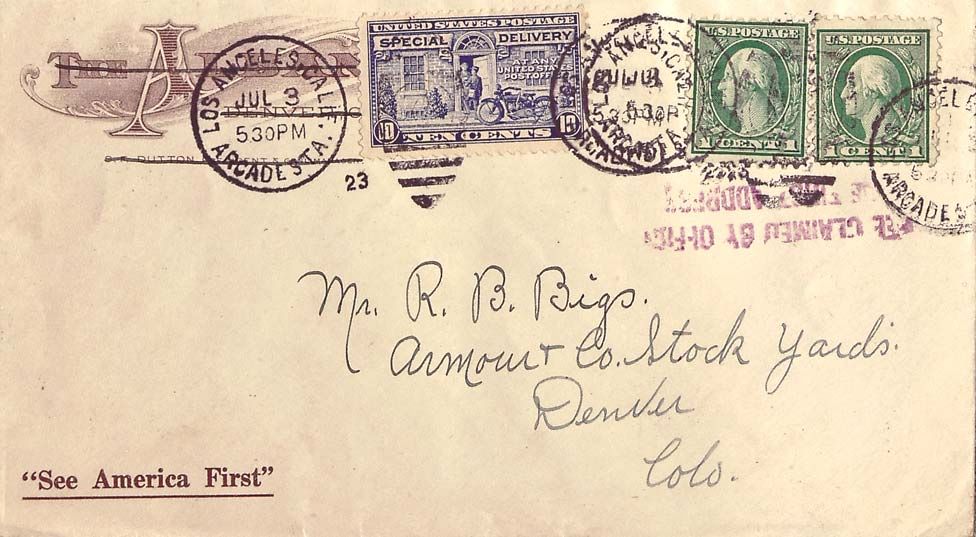 THE A
DENVER
C.F. DUTTON
LOS ANGELES, CALIF.
JUL 3
530PM
ARCADE STA.
23
UNITED STATES POSTAGE
SPECIAL DELIVERY
AT ANY
UNITED STATES
POST OFFICE
10 TEN CENTS 10
JUL 3
5 30 PM
U.S. POSTAGE
1 CENT 1
U.S. POSTAGE
1 CENT 1
ARCADE STA
FEE CLAIMED BY OFFICE
OF FIRST ADDRESS
Mr. R. B. Bigs.
Armour & Co. Stock Yards.
Denver
Colo.
"See America First"